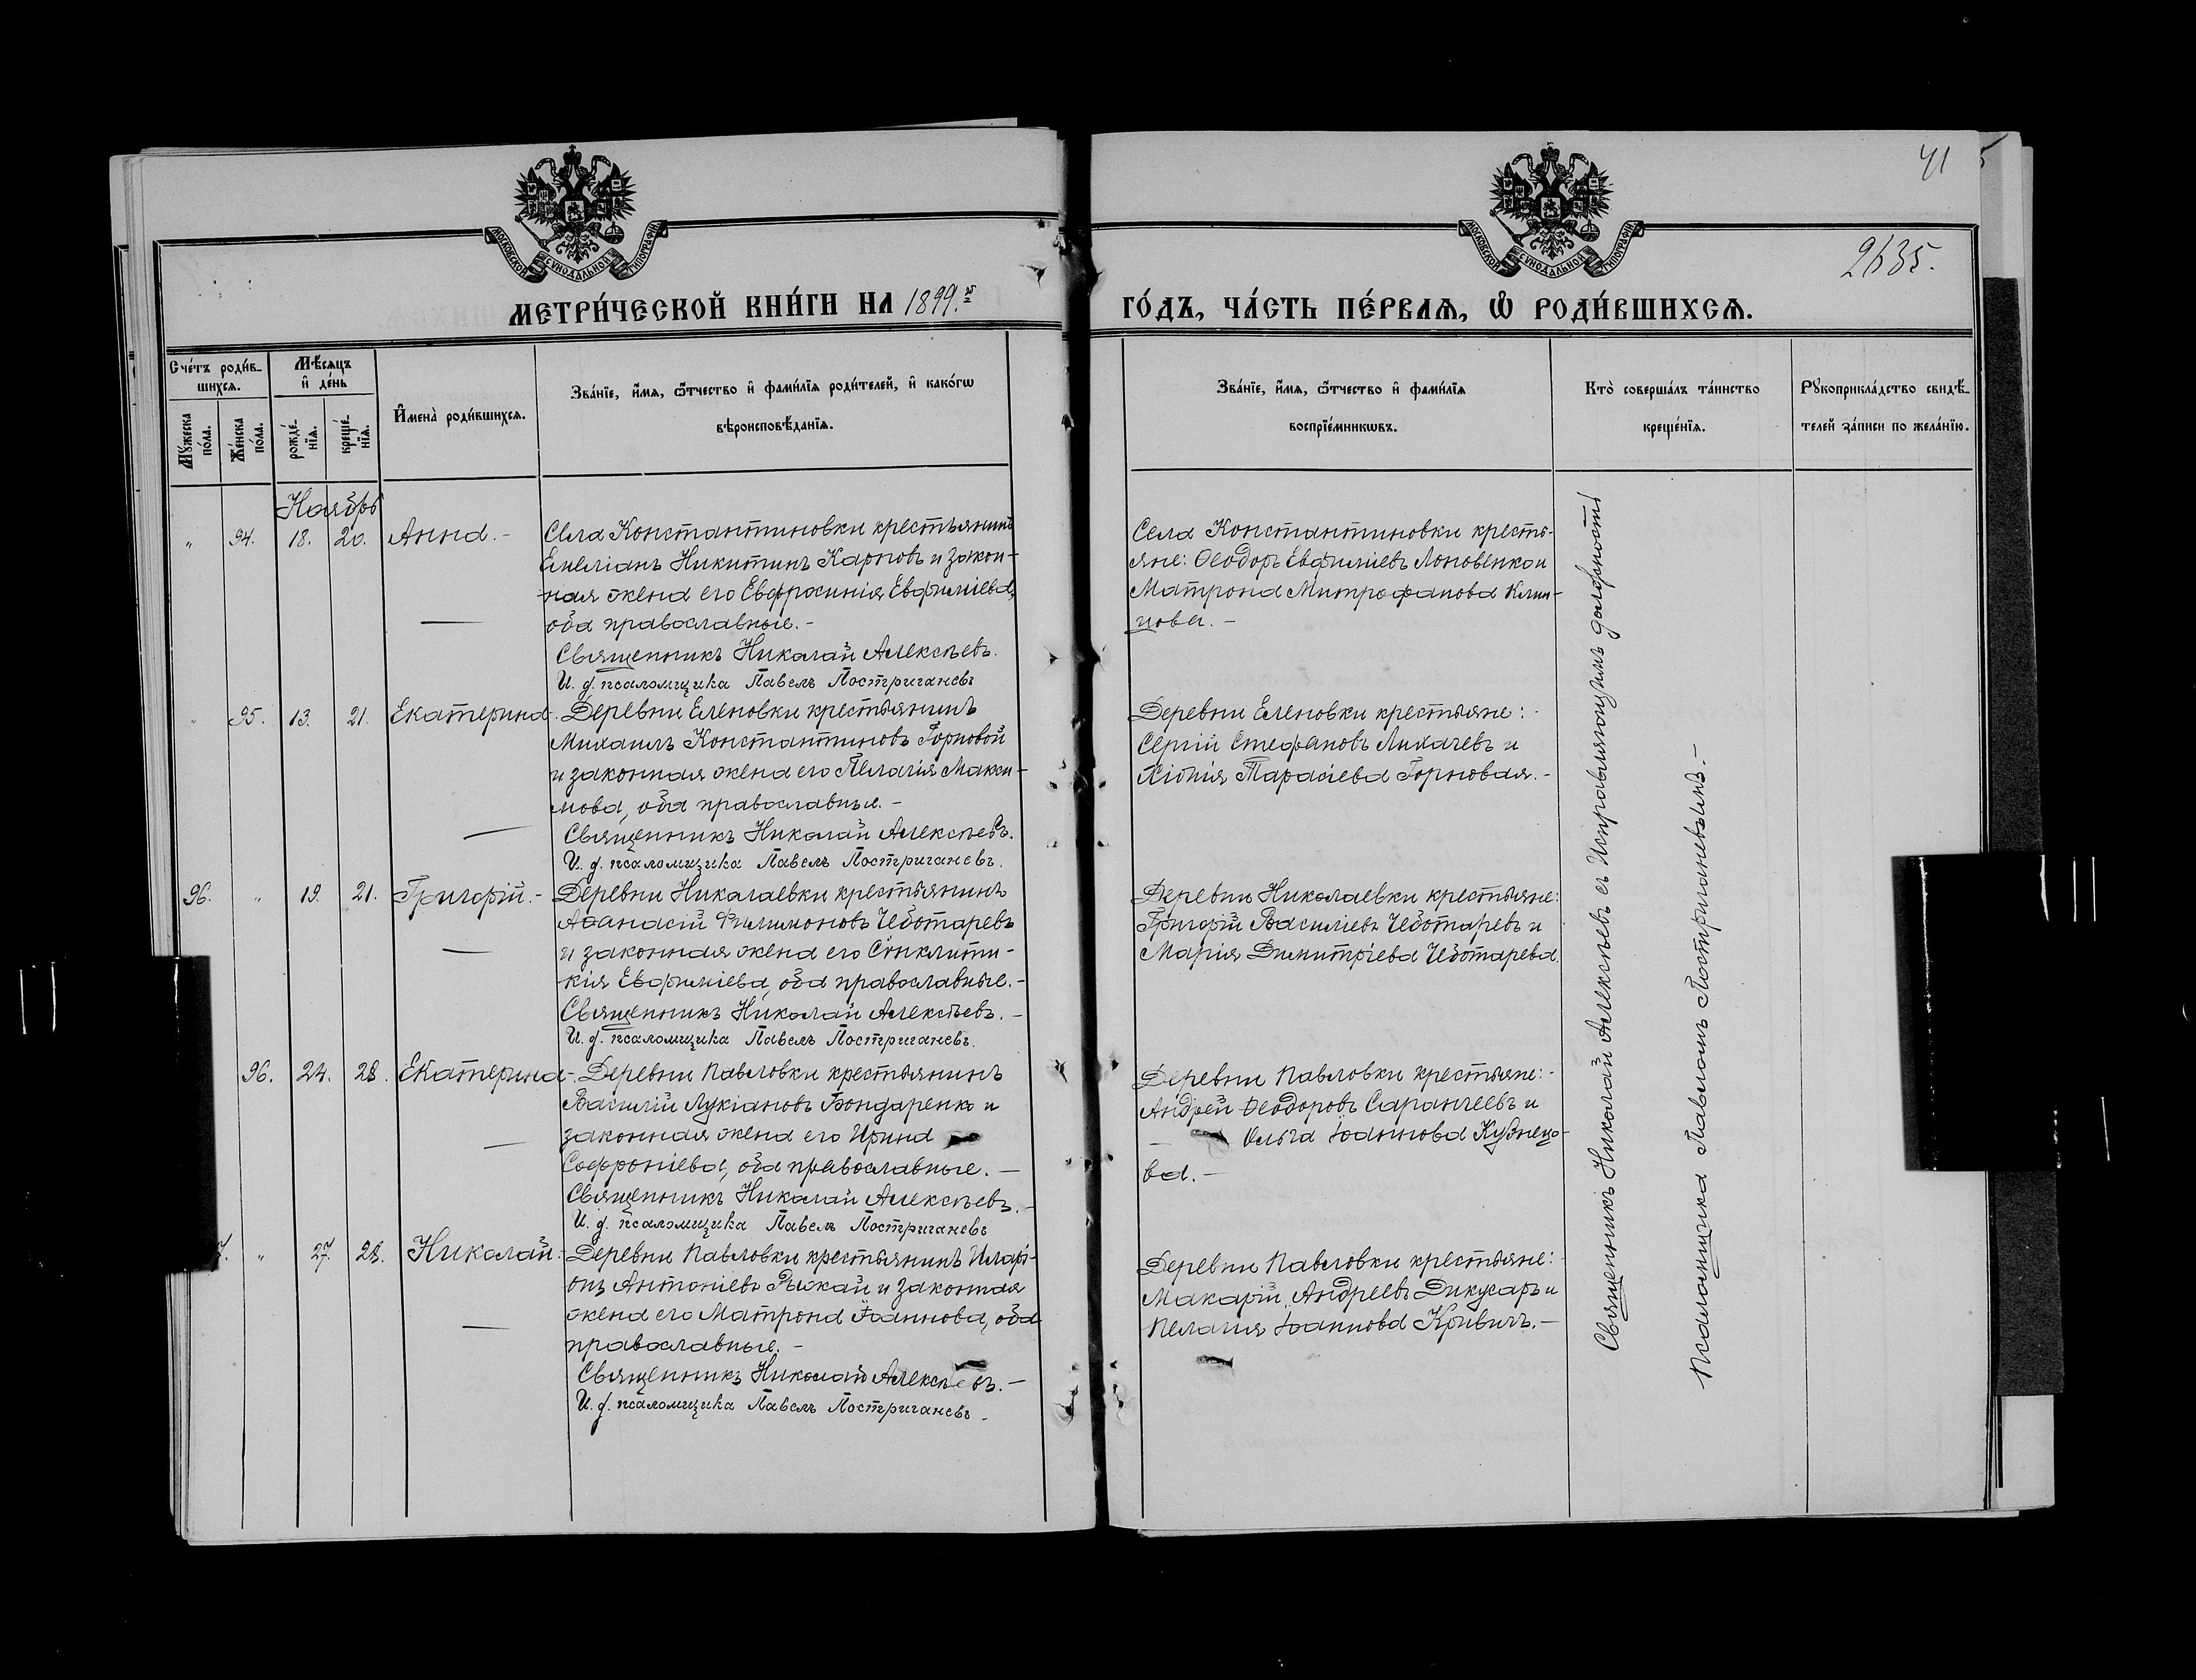 41
2635.
МОСКОВСКОЙ СѴНОДАЛЬНОЙ ТИПОГРАФІИ
МОСКОВСКОЙ СѴНОДАЛЬНОЙ ТИПОГРАФІИ
МЕТРИ́ЧЕСКОЙ КНИ́ГИ НА 1899.й
ГО́ДЪ, ЧА́СТЬ ПЕ́РВАѦ, Ѽ РОДИ́ВШИХСѦ.
Сче́тъ роди́в-
шихсѧ.
Мꙋ́жеска по́ла.
Же́нска по́ла.
Мѣ́сѧцъ
и҆ де́нь
рожде́-
нїѧ.
креще́-
нїѧ.
И҆мена̀ роди́вшихсѧ.
Зва́нїе, и҆́мѧ, ѻ҆́тчество и҆ фами́лїѧ роди́телей, и҆ како́гѡ
вѣроисповѣ́данїѧ.
Зва́нїе, и҆́мѧ, ѻ҆́тчество и҆ фами́лїѧ
воспрїе́мникѡвъ.
Кто̀ соверша́лъ та́инство
креще́нїѧ.
Рꙋкоприкла́дство свидѣ́-
телей за́писи по жела́нїю.
Ноябрь
„ 94. 18. 20. Анна.-
Села Константиновки крестьянинъ
Емеліанъ Никитинъ Карповъ и закон-
ная жена его Евфросинія Евфиміева,
оба православные.-
Священникъ Николай Алексѣевъ.
И. д. псаломщика Павелъ Постригачевъ
Села Константиновки кресть-
яне: Ѳеодоръ Евфиміевъ Лоповенко и
Матрона Митрофанова Клим-
цова.-
„ 95. 13. 21. Екатерина.
Деревни Еленовки крестьянинъ
Михаилъ Константиновъ Горновой
и законная жена его Пелагія Макси-
мова, оба православные.-
Священникъ Николай Алексѣевъ.
И. д. псаломщика Павелъ Постригачевъ.
Деревни Еленовки крестьяне:
Сергій Стефановъ Лихачевъ и
Хіонія Тарасіева Горновая.-
96. „ 19. 21. Григорій.-
Деревни Николаевки крестьянинъ
Аѳанасій Филимоновъ Чеботаревъ
и законная жена его Сѵнклити-
кія Евфиміева, оба православные.-
Священникъ Николай Алексѣевъ.-
И. д. псаломщика Павелъ Постригачевъ.
Деревни Николаевки крестьяне:
Григорій Василіевъ Чеботаревъ и
Марія Димитріева Чеботарева.
96. 24. 28. Екатерина-
Деревни Павловки крестьянинъ
Василій Лукіановъ Бондаренко и
законная жена его Ирина
Софроніева, оба православные.-
Священникъ Николай Алексѣевъ.-
И. д. псаломщика Павелъ Постригачевъ
Деревни Павловки крестьяне:-
Андрей Ѳеодоровъ Саранчеевъ и
Ольга Іоаннова Кузнецо-
ва.-
7. „ 27. 28. Николай.-
Деревни Павловки крестьянинъ Иларі-
онъ Антоніевъ Рыжай и законная
жена его Матрона Іоаннова, оба
православные.-
Священникъ Николай Алексѣевъ.-
И. д. псаломщика Павелъ Постригачевъ.
Деревни Павловки крестьяне:
Макарій Андреевъ Дикусаръ и
Пелагія Іоаннова Кривичъ.-
Священникъ Николай Алексѣевъ съ Исправляющимъ должность
Псаломщика Павломъ Постригачевымъ.-